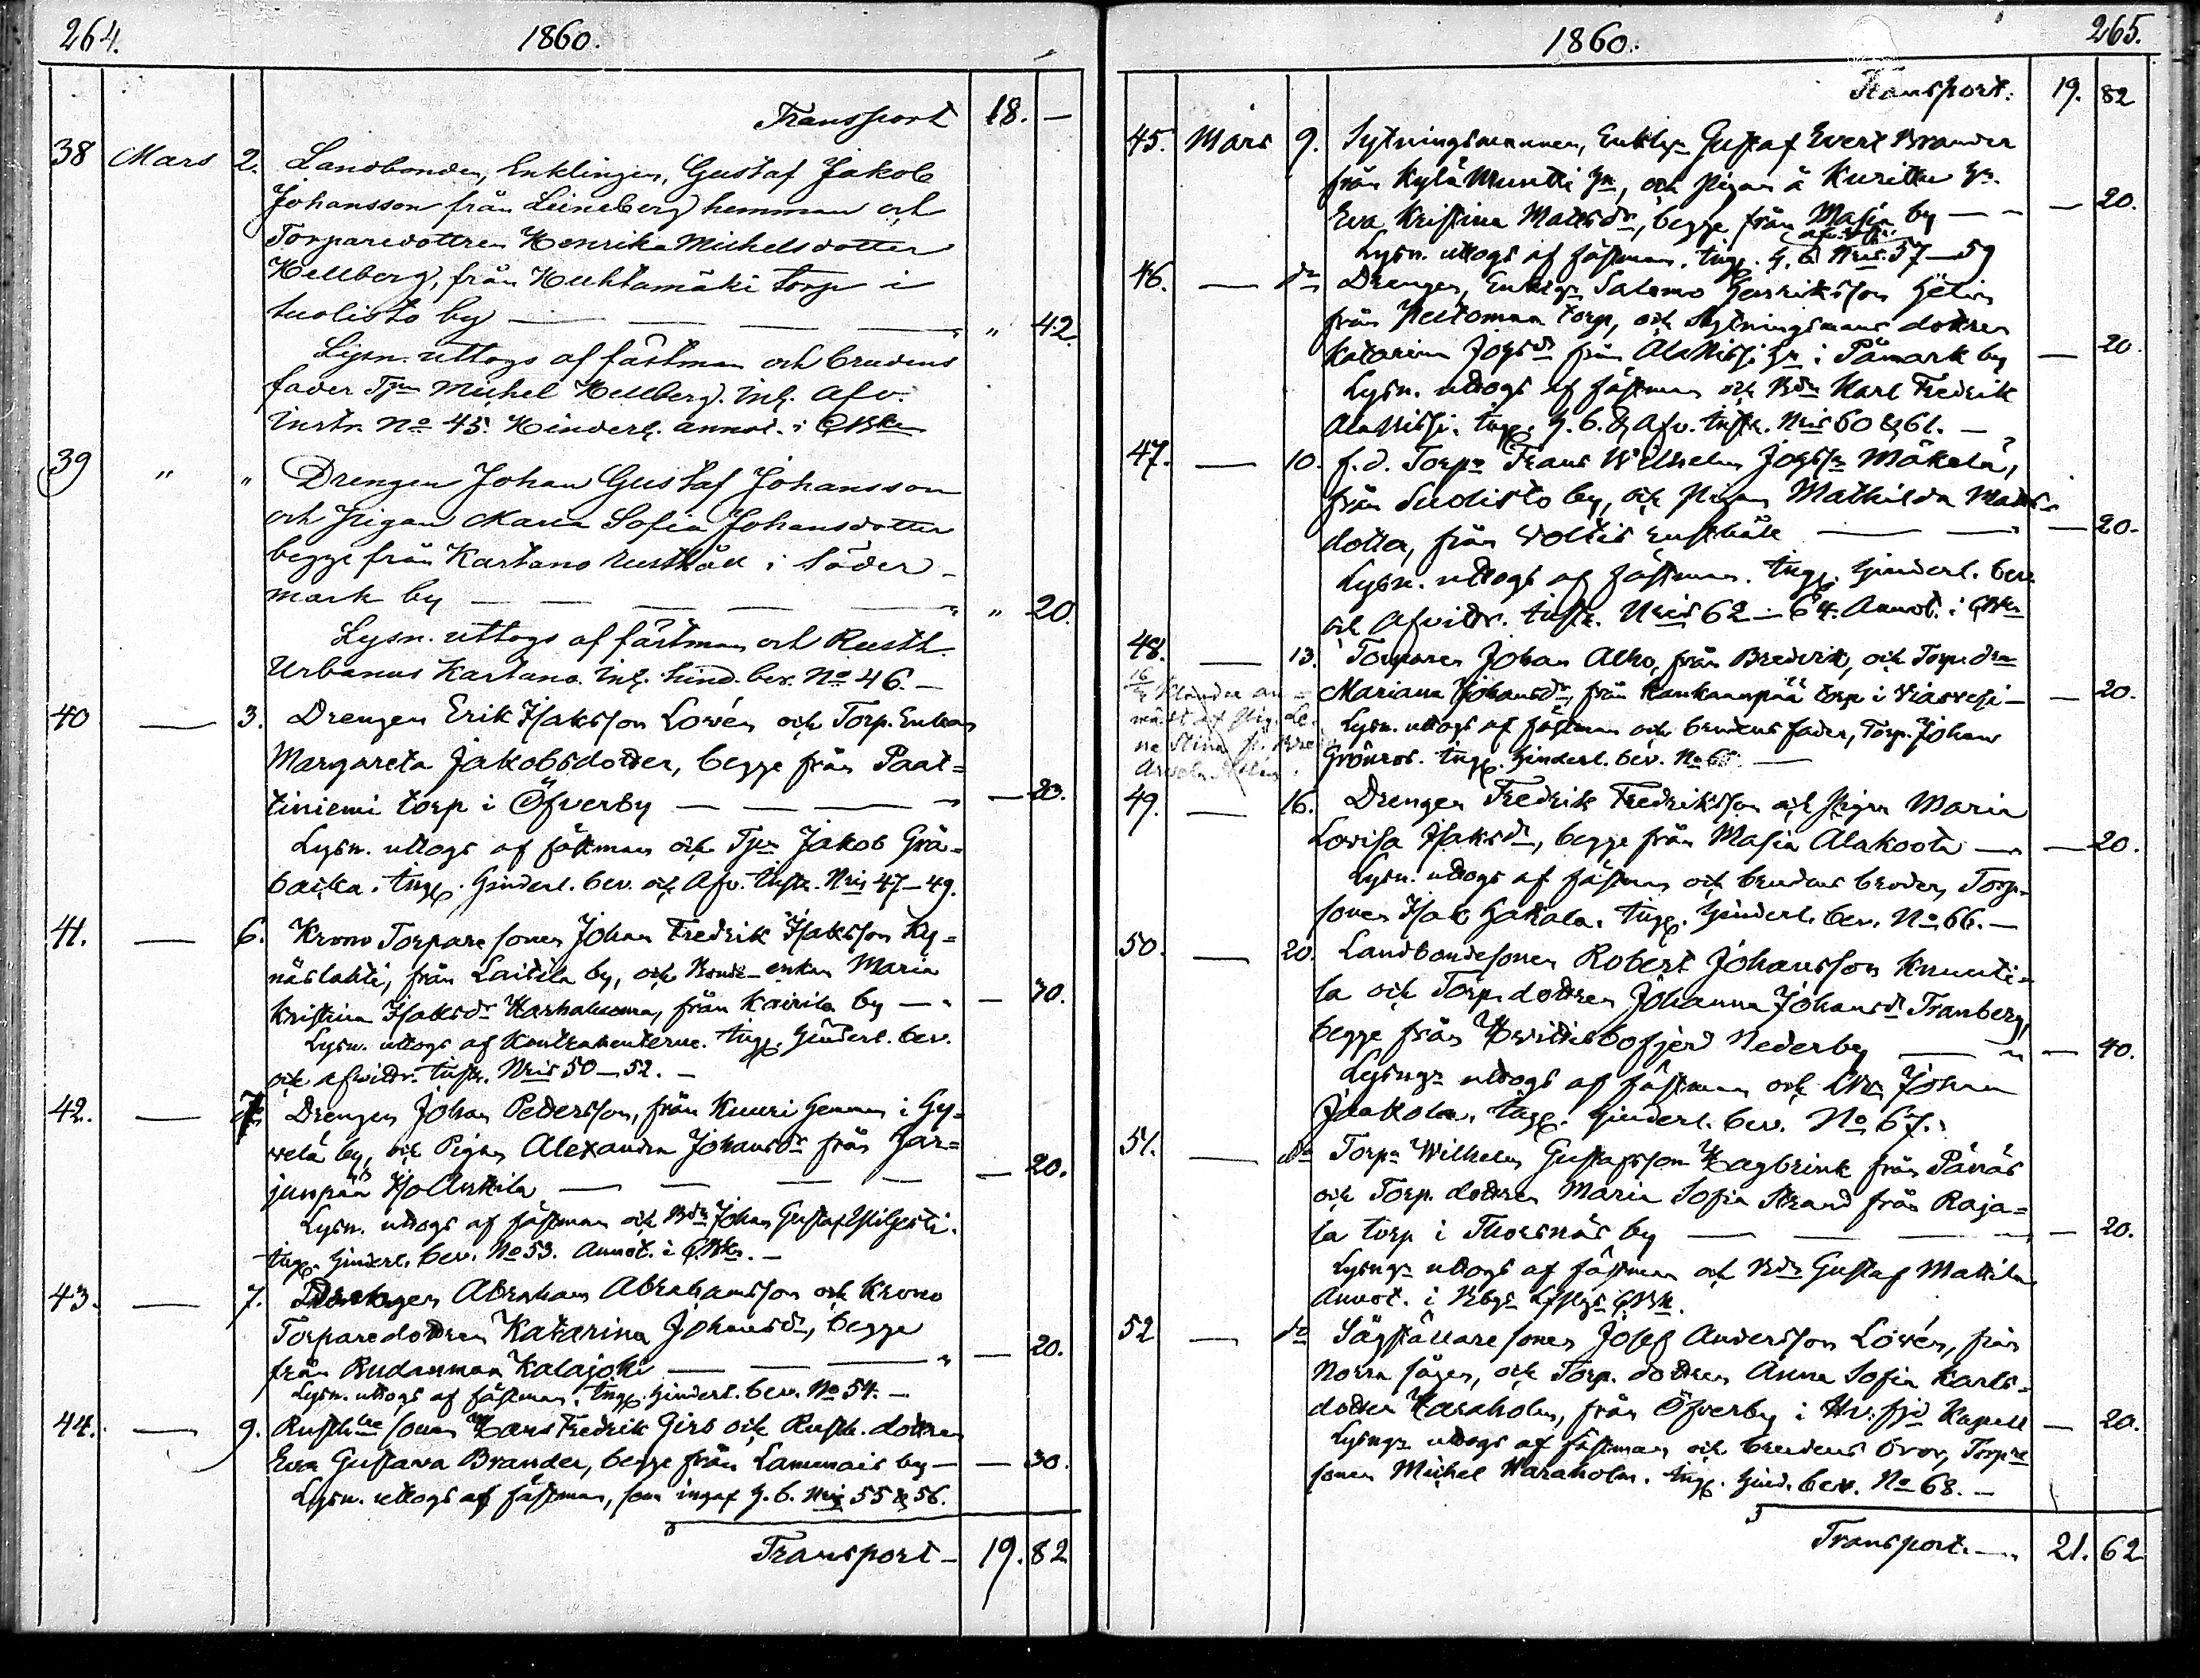 264.
1860.
Transport 18. —
38 Mars 2. Landbonden, Enklingen, Gustaf Jakob
Johansson från Leineberg hemman och
Torparedottren Henrika Michelsdotter
Hellberg, från Huhtamäki torp i
Suolisto by — — — — " " 42.
Lysn. uttogs af fästman och brudens
fader Tpn Michel Hellberg. Inl. Afv.
instr. No 45. Hinderl. annot. i
39 " " Drengen Johan Gustaf Johansson
och Pigan Maria Sofia Johansdotter
begge från Kartano Rusthåll i Söder-
mark by — — — — " " 20.
Lysn. uttogs af fästman och Rusth.
Urbanus Kartano. Inl. hind. bev. No 46. —
40 — 3. Drengen Erik Isaksson Lovén och Torp. Enkan
Margareta Jakobsdotter, begge från Paat=
tiniemi torp i Öfverby — — — — 20.
Lysn. uttogs af fästman och Tpn Jakob Grå=
backa. Ingg. Hinderl. bev. och Afv. Instr. Nris 47–49.
41. — 6. Krono Torpare sonen Johan Fredrik Isaksson Ky=
näslahti, från Laitila by, och Bonde-enkan Maria
Kristina Isaksdr Karhaluoma, från Kairila by — — 70.
Lysn. uttogs af Kontrahenterne. Ingg. Hinderl. bev.
och afvittr. Instr. Nris 50–52. —
42. — do Drengen Johan Pettersson, från Knuri Hemman i Hy=
velä by, och Pigan Alexandra Johansdr från Har=
junpää Iso Anttila — — — — 20.
Lysn. uttogs af fästman och Bdn Johan Gustaf
Ingg. Hinderl. bev. No 53. Annot. i —
43. — 7. Drengen Abraham Abrahamsson och Krono
Torparedottren Katarina Johansdr, begge
från Rudanmaa Kalajoki — — — " — 20.
Lysn. uttogs af fästman. Ingg. Hinderl. bev. No 54. —
44. — 9. Rusth. sonen Hans Fredrik Girs och Rusth. dottren
Eva Gustava Brander, begge från Lammais by — — 30.
Lysn. uttogs af fästman, som ingaf H. b. Nris 55 & 56.
Transport — 19. 82
265.
1860.
Transport. 19. 82
45. Mars 9. Sytningsmannen, Enklgn Gustaf Evert Brander
från Kylä Muntti hn, och Pigan å Kurittu hn
Eva Kristina Mattsdr, begge från Masia by — — — 20.
Lysn. uttogs af fästman. Ingg. H. b. Nris 57–59
46. — do Drengen, Enklgn Salomo Henriksson Hélin
från Peltomaa torp, och Sytningsmans dottren
Katarina Josdr från Alanissi hn i Påmark by — 20.
Lysn. uttogs af fästman och Bdn Karl Fredrik
Alanissi. Ingg. H. b. & Afv. Instr. Nris 60 & 61. —
47. — 10. f.d. Torpn Frans Wilhelm Jossn Mäkelä,
från Suolisto by, och Pigan Mathilda Matts-
dotter, från Voltis Rusthåll — — — 20.
Lysn. uttogs af fästman. Ingg. Hinderl. bev.
och Afvittr. Instr. Nris 62–64. Annot. i
48. — 13. Torparen Johan Alho, från Bredvik, och Torp. drn
Mariana Johansdr, från Kankaanpää torp i Viasvesi — — 20.
Lysn. uttogs af fästman och brudens fader, Torp. Johan
Grönroos. Ingg. Hinderl. bev. No 65. —
49. — 16. Drengen Fredrik Fredriksson och Pigan Maria
Lovisa Isaksdr, begge från Masia Alakoota — — 20.
Lysn. uttogs af fästman och brudens broder, Torp-
sonen Isak Hakala. Ingg. Hinderl. bev. No 66. —
50. — 20. Landbondesonen Robert Johansson Knuuti=
la och Torp. dottren Johanna Johansdr Tranberg,
begge från Hvittisbofjerd Nederby — — — 40.
Lysngn uttogs af fästman och Johan
Jaakola. Ingg. Hinderl. bev. No 67.
51. — do Torpn Wilhelm Gustafsson Hagbrink från Pänäs
och Torp. dottren Maria Sofia Strand från Raja=
la torp i Thorsnäs by — — — — 20.
Lysngn uttogs af fästman och Bdn Gustaf Mattila
Annot. i
52 — do Sågställare sonen Josef Andersson Lovén, från
Norra sågen, och Torp. dottren Anna Sofia Karls=
dotter Varaholm, från Öfverby i Hv. fjd Kapell — 20.
Lysngn uttogs af fästman och brudens bror, Torpre
sonen Michel Waraholm. Ingg. Hind. bev. No 68. —
Transport. — 21. 62